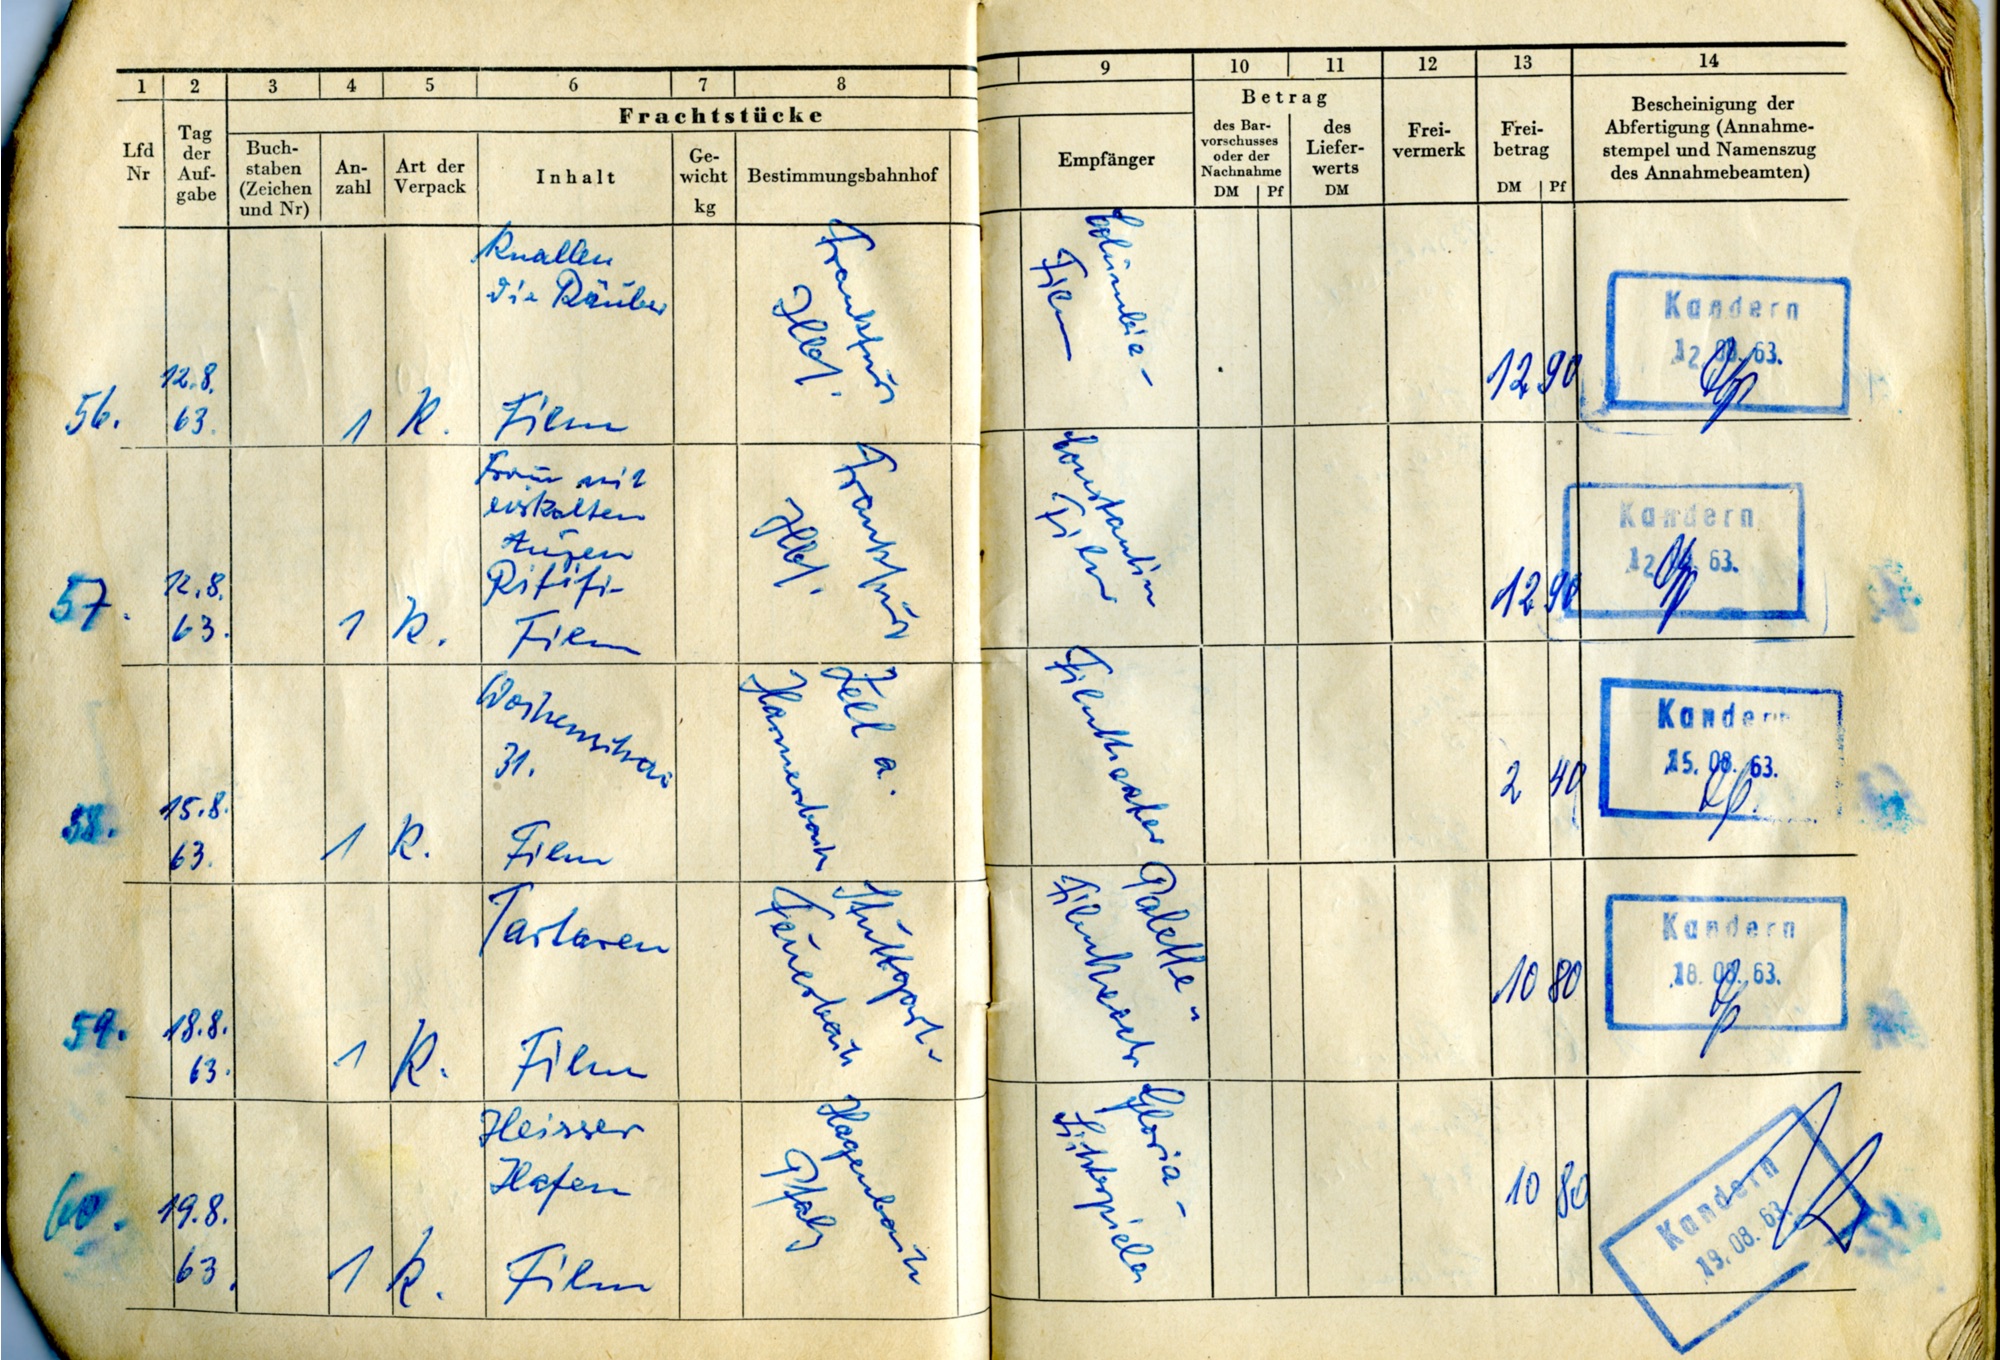 1 2 3 4 5 6 7 8 9 10 11 12 13 14
Lfd
Nr
Tag
der
Auf-
gabe
Frachtstücke
Buch-
staben
(Zeichen
und Nr)
An-
zahl
Art der
Verpack
Inhalt
Ge-
wicht
kg
Bestimmungsbahnhof
Empfänger
Betrag
des Bar-
vorschusses
oder der
Nachnahme
DM Pf
des
Liefer-
werts
DM
Frei-
vermerk
Frei-
betrag
DM Pf
Bescheinigung der
Abfertigung (Annahme-
stempel und Namenszug
des Annahmebeamten)
56.
12.8.
63.
1
K.
Knallen
die Räuber
Film
Frankfurt
Hbf.
Columbia-
Film
12 90
Kandern
12. 08. 63.
57.
12.8.
63.
1
K.
Frau mit
eiskalten
Augen
Rififi-
Film
Frankfurt
Hbf.
Constantin
Film
12 90
Kandern
12. 63.
58.
15.8.
63.
1
K.
Wochenschau
31.
Film
Zell a.
Harmersbach
Filmtheater
2 40
Kandern
15. 08. 63.
59.
18.8.
63.
1
K.
Tartaren
Film
Stuttgart-
Feuerbach
Palette-
Filmtheater
10 80
Kandern
18. 08. 63.
60.
19.8.
63.
1
K.
Heisser
Hafen
Film
Hagenbach
Pfalz
Gloria-
Lichtspiele
10 80
Kandern
19. 08. 63.